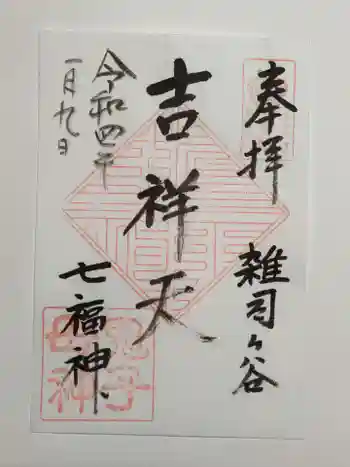 奉拝
雑司ヶ谷
吉祥天
七福神
令和四年
一月九日